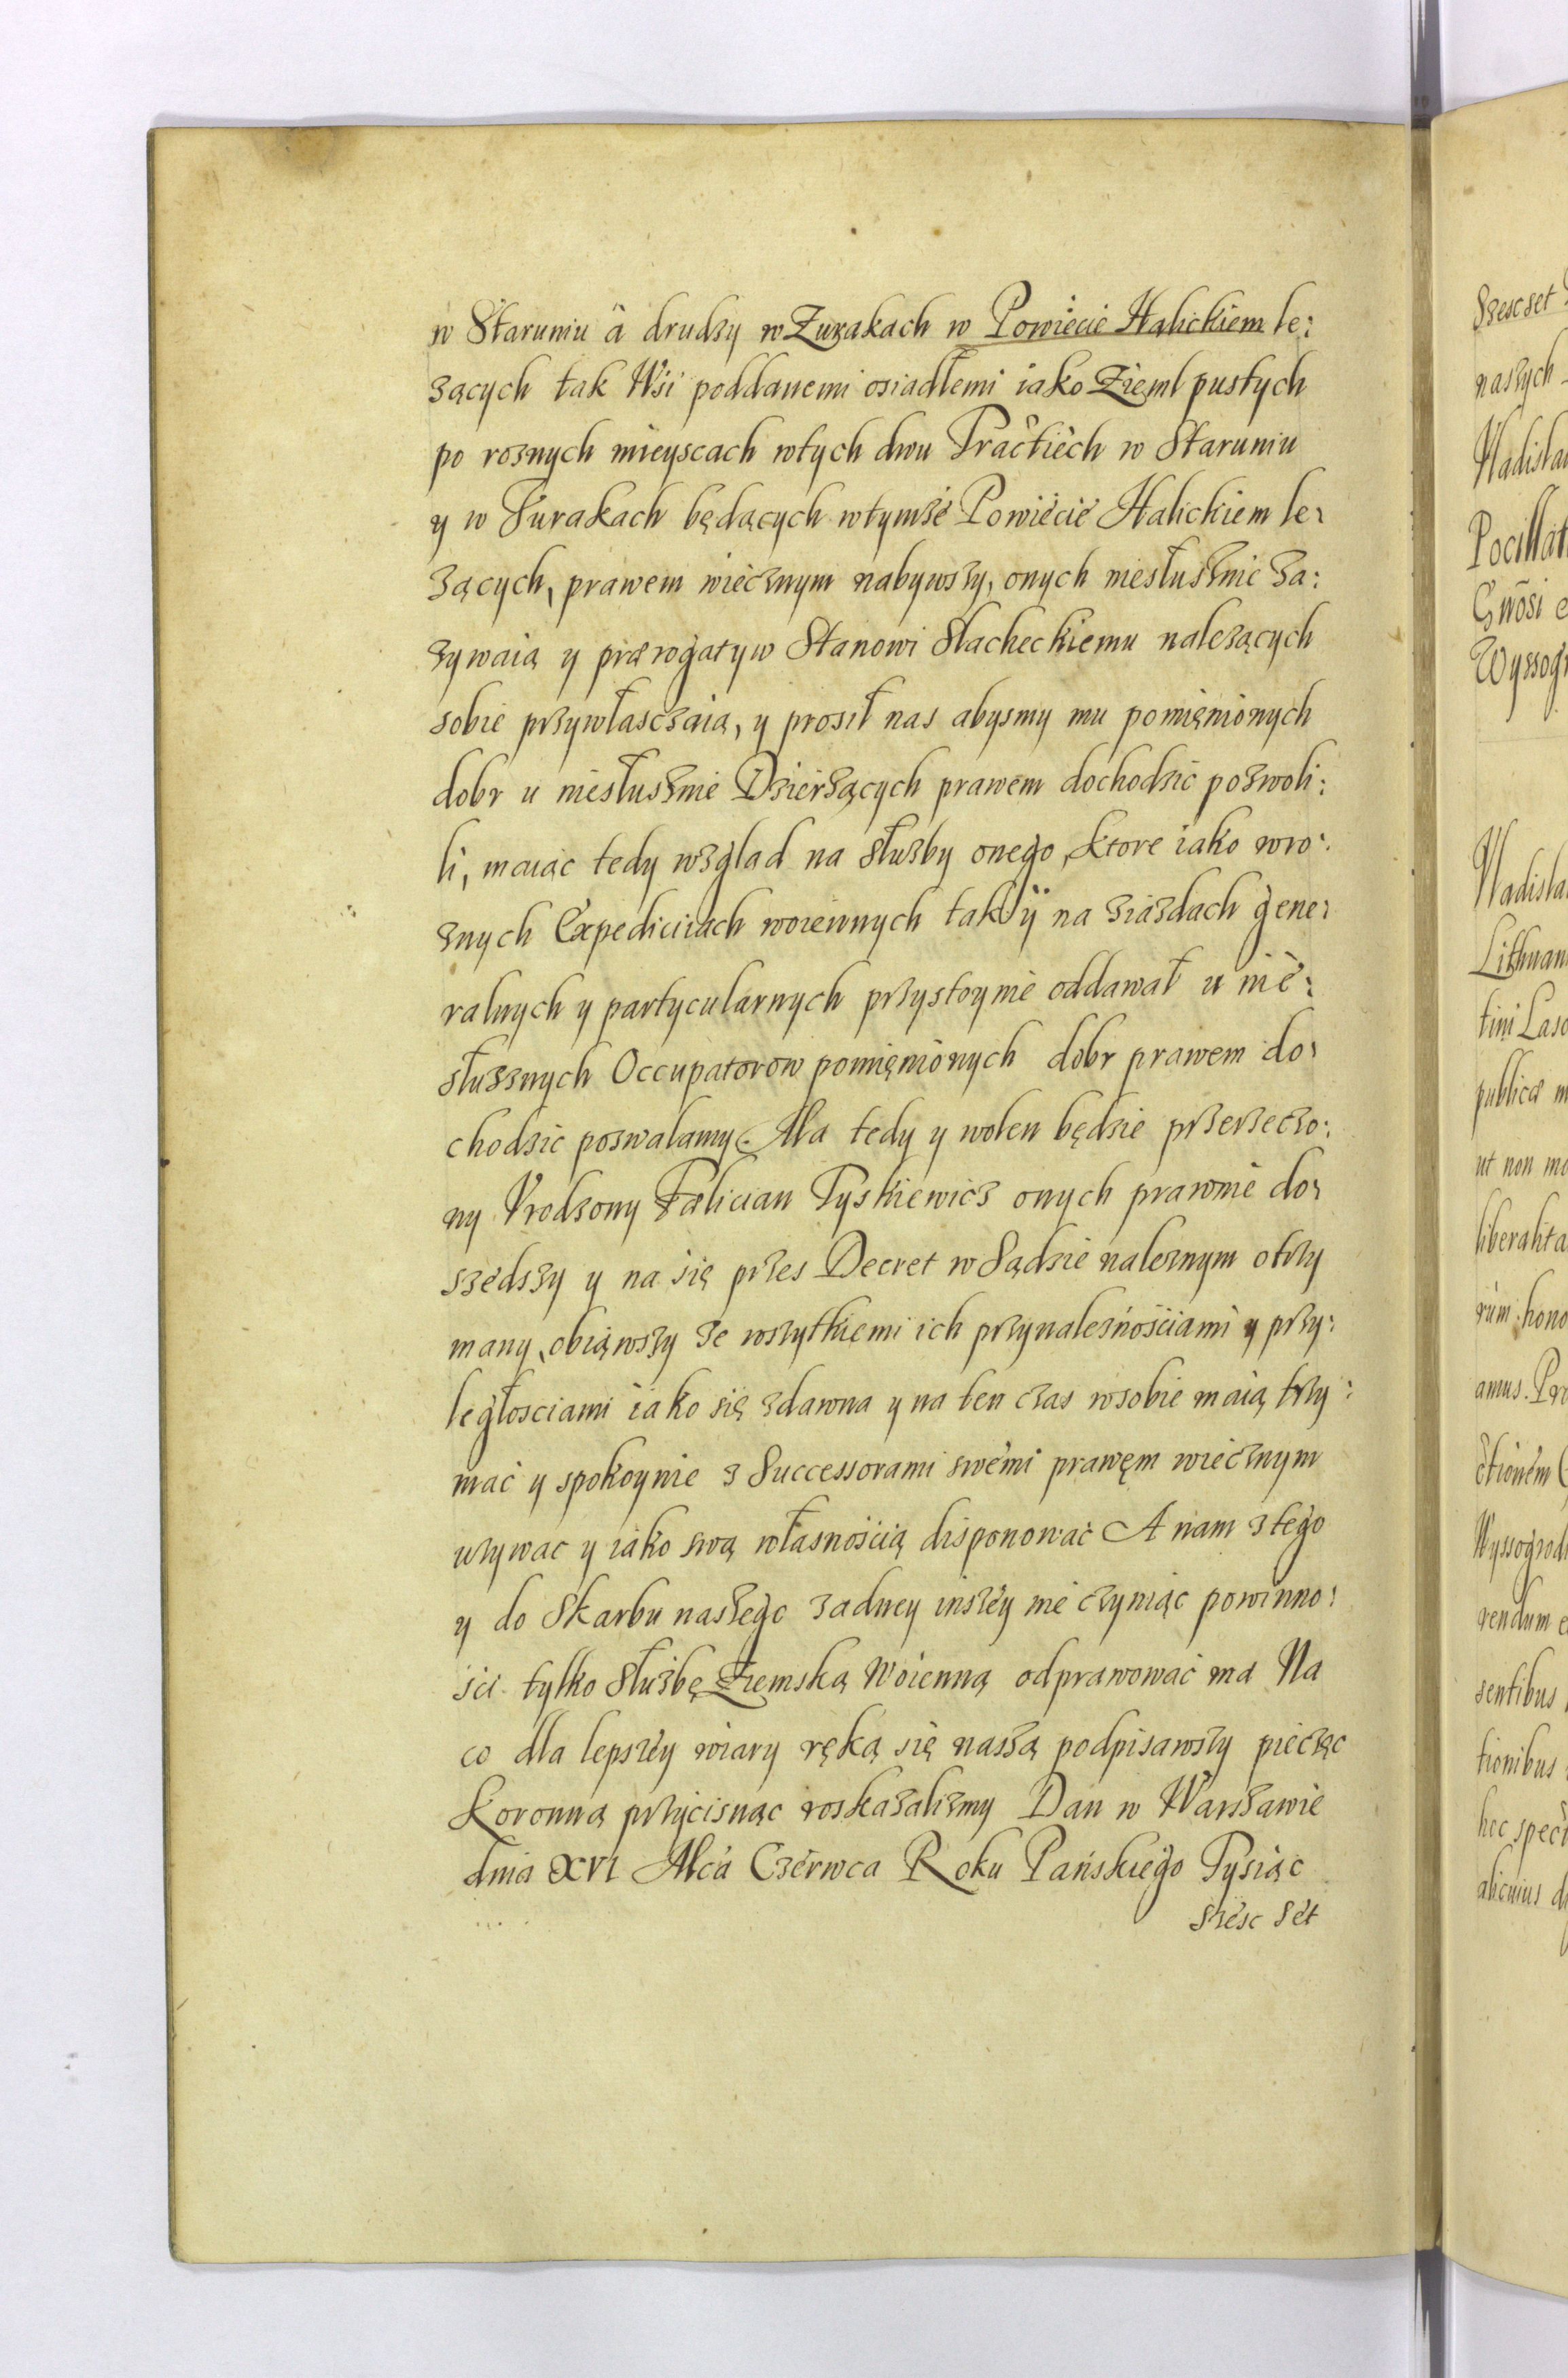 w Staruniu â drudzy w Zurakach w Powiecie Halickiem le:
zących tak Wśi poddanemi osiadłemi iako Zieml pustych
po roznych mieyscach wtych dwu Tractiech w Staruniu
y w Surakach będących wtymże Powiecie Halickiem le:
zących, prawem wiecznym nabywszy, onych niesłusznie za:
zywaią y prærogatyw Stanowi Slacheckiemu nalezących
sobie przywłasczaią, y prosił nas abysmy mu pomięnionych
dobr u niesłusznie Dzierzących prawem dochodzic pozwoli:
li, maiąc tedy wzglad na słuzby onego, ktore iako wro:
znych Expediciach woiennych tak y na ziazdach gene:
ralnych y partycularnych przystoynie oddawał u nie:
słuzznych Occupatorow pomięnionych dobr prawem do:
chodzic pozwalamy. Ma tedy y wolen będzie przerzeczo:
ny Vrodzony Fælician Tyskiewicz onych prawnie do:
szedszy y na się przes Decret w Sądzie naleznym otrzy
many, obiąwszy ze wszytkiemi ich przynaleznościami y przy:
ległosciami iako się zdawna y na ten czas wsobie maią trzy:
mać y spokoynie z Successorami swémi prawęm wiecznym
uzywac y iako swą własnością disponować A nam ztego
y do Skarbu naszego zadney inszéy nie czyniąc powinno:
ści tylko służbę Ziemską Woienną odprawować ma Na
co dla lepszéy wiary ręką się naszą podpisawszy pieczęc
Koronną przycisnąc roskazalizmy Dan w Warszawie
dnia XVI Mca Czérwca Roku Pańskiego Tysiąc
szésc sét
Szesc set
naszych
Vladisla
Pocillat
Gnosi
Wyssogr
Vladisla
Lithuan
tini Laso
publicæ m
ut non mo
liberalita
rum hono
amus. Pro
ctionem
Wyssogrod
rendum
sentibus
tionibus
hoc spect
alicuius d